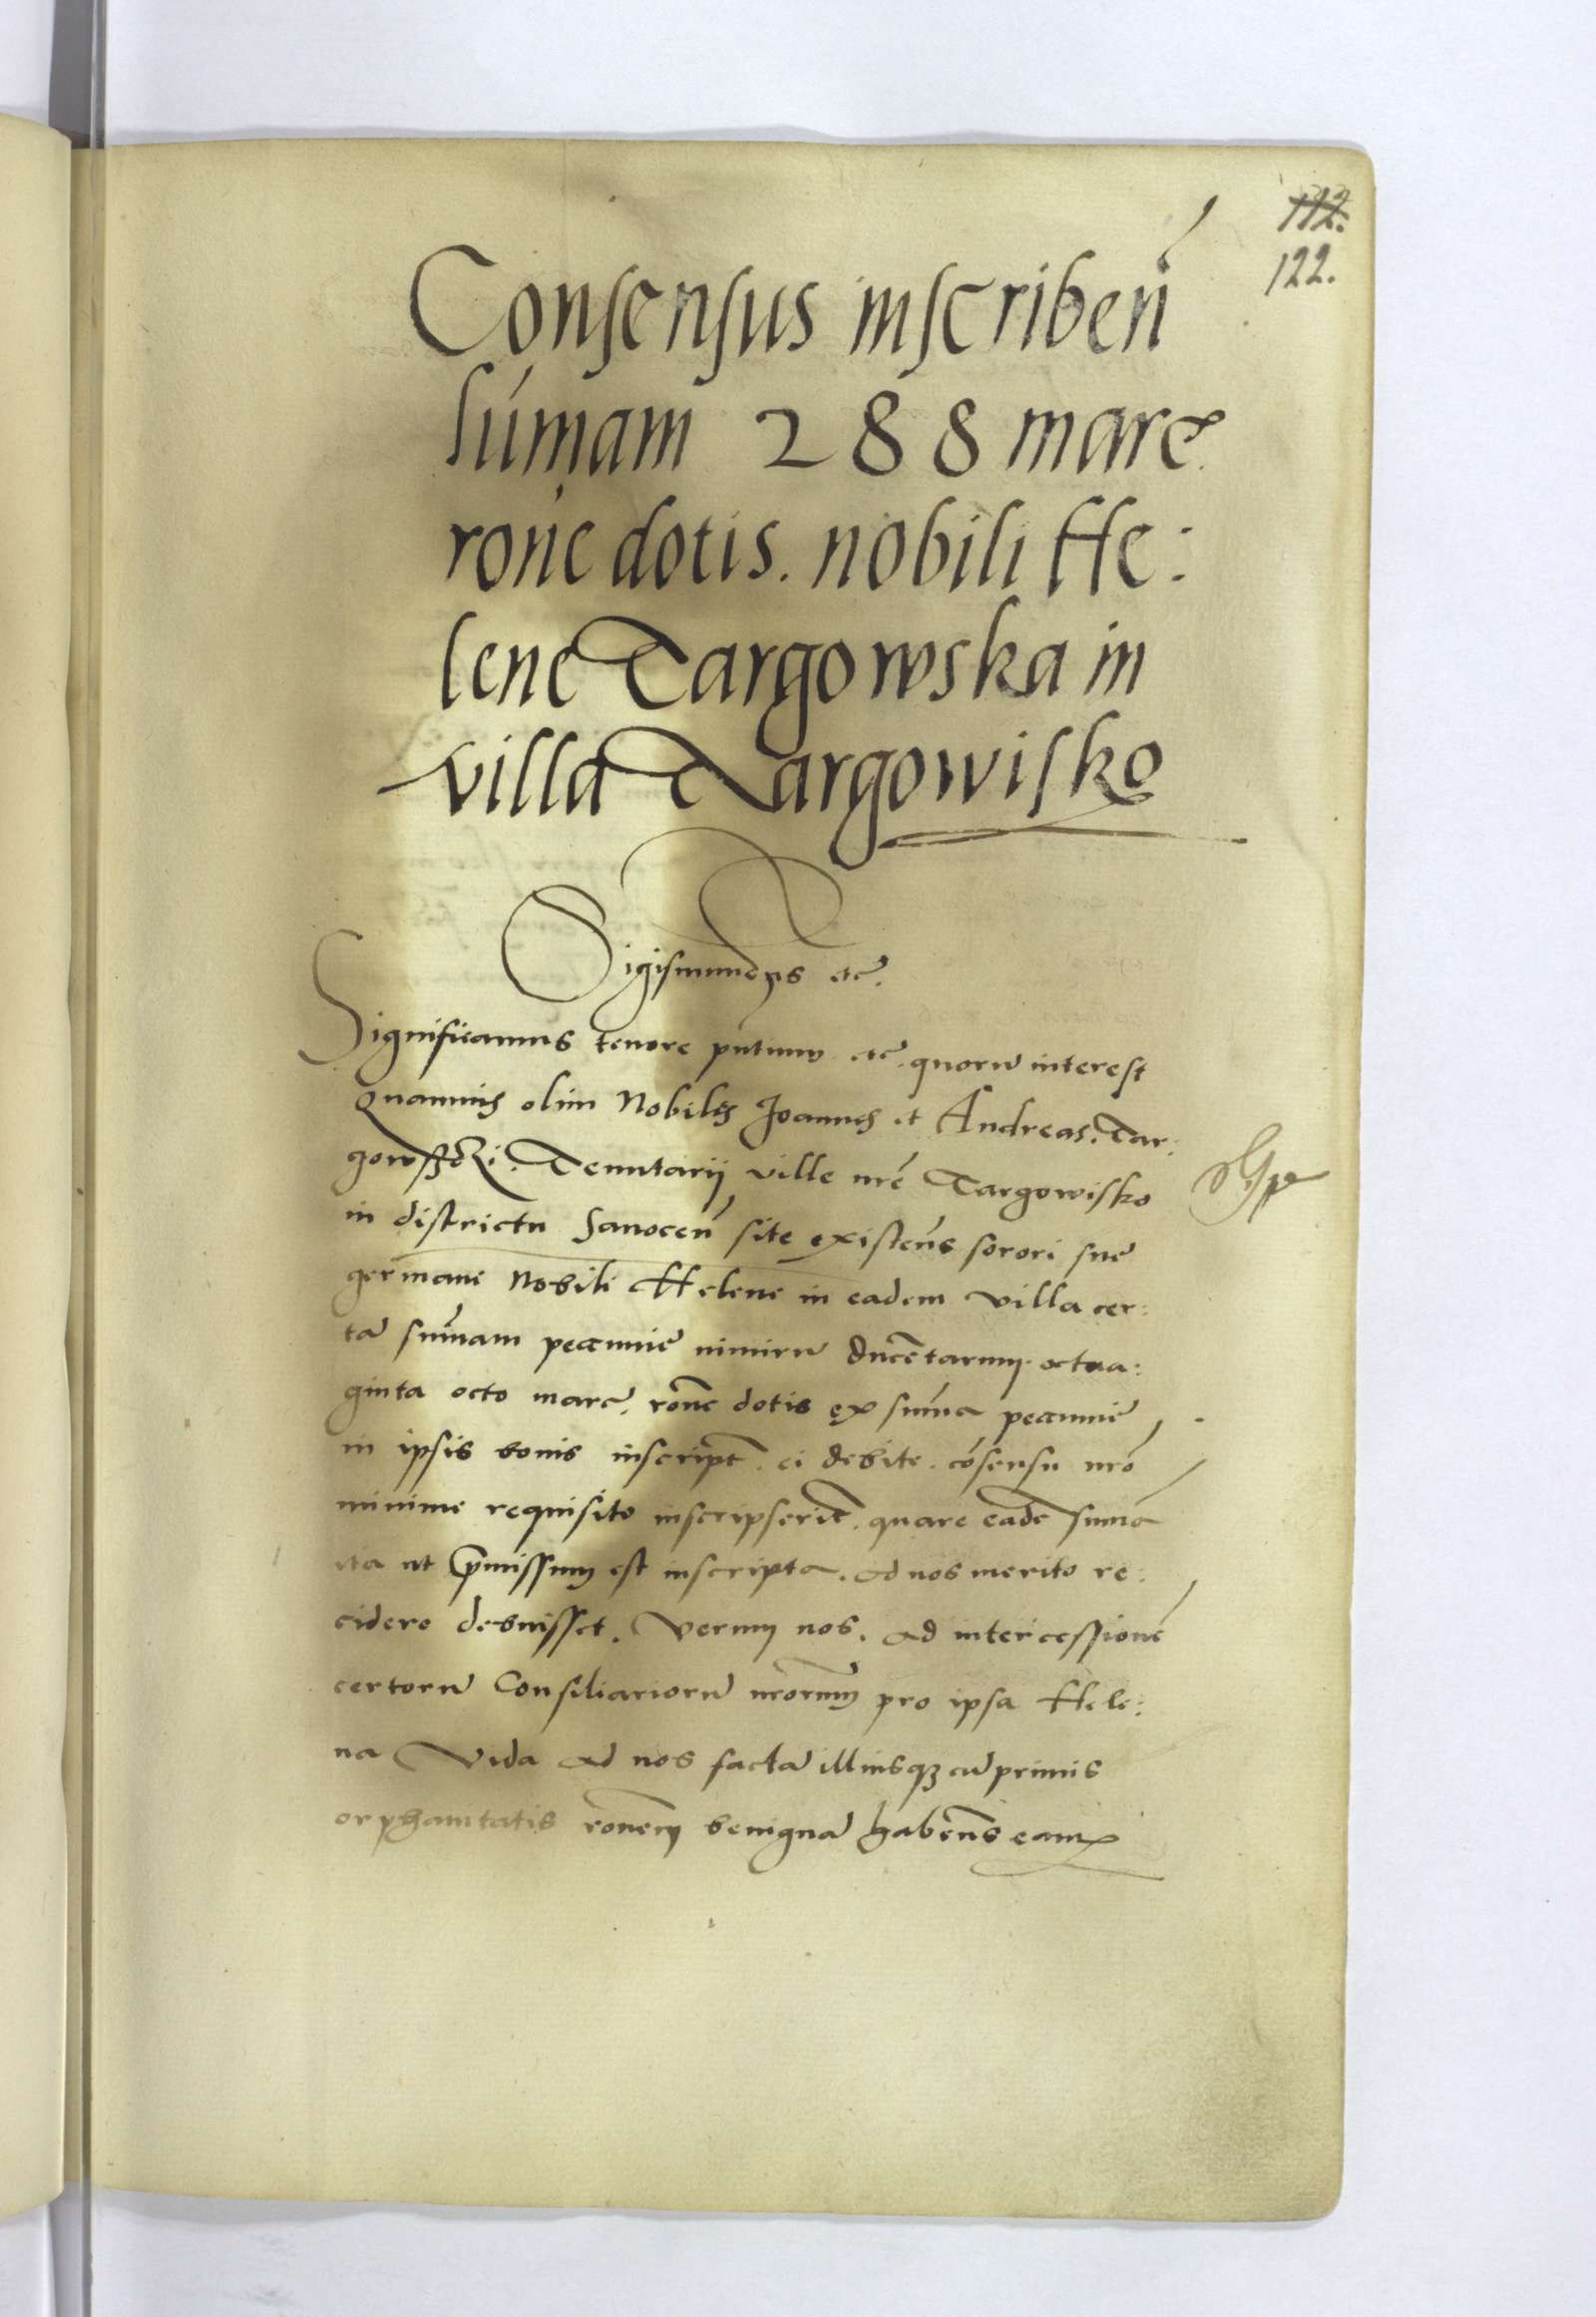 112.
122.
Consensus inscriben̄
sum̄am 288 marc.
rōne dotis. nobili He:
lene Targowska in
villa Targowisko
Sigismundus etc.
Significamus tenore p̄ntium etc. quorū interest
Quamuis olim Nobiles Joannes et Andreas. Tar:
gowsski. Tenutarij ville nr̄e Targowisko
in districtu Sanocen̄ site existen̄s sorori sue
germane Nobili Helene in eadem villa cer:
tā sum̄am pecunie nimirū ducētarum octua:
ginta octo marc. rōne dotis ex sum̄a pecunie
in ipsis bonis inscript. ei debite. cōsensu nr̄o
minime requisito inscripserīt. quare eadē sum̄a
ita ut p̄missum est inscripta. ad nos merito re:
cidere debuisset. Verum nos. ad intercessionē
certorū Consiliariorū nr̄orum pro ipsa Hele:
na Vida ad nos factā illiusqꝫ cūprimis
orphanitatis rōnem benignā haben̄s eam